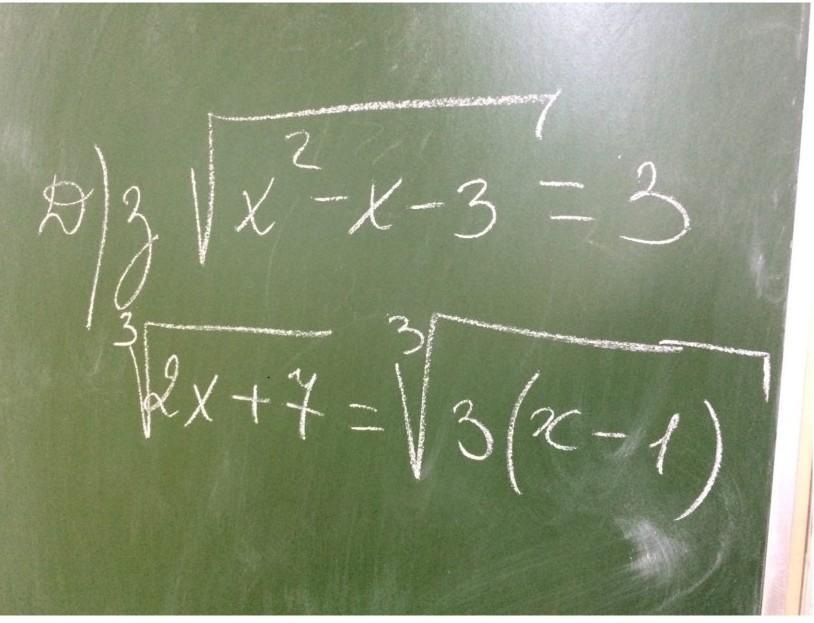 Д) 3 √(x² - x - 3) = 3
∛(2x + 7) = ∛(3(x - 1))